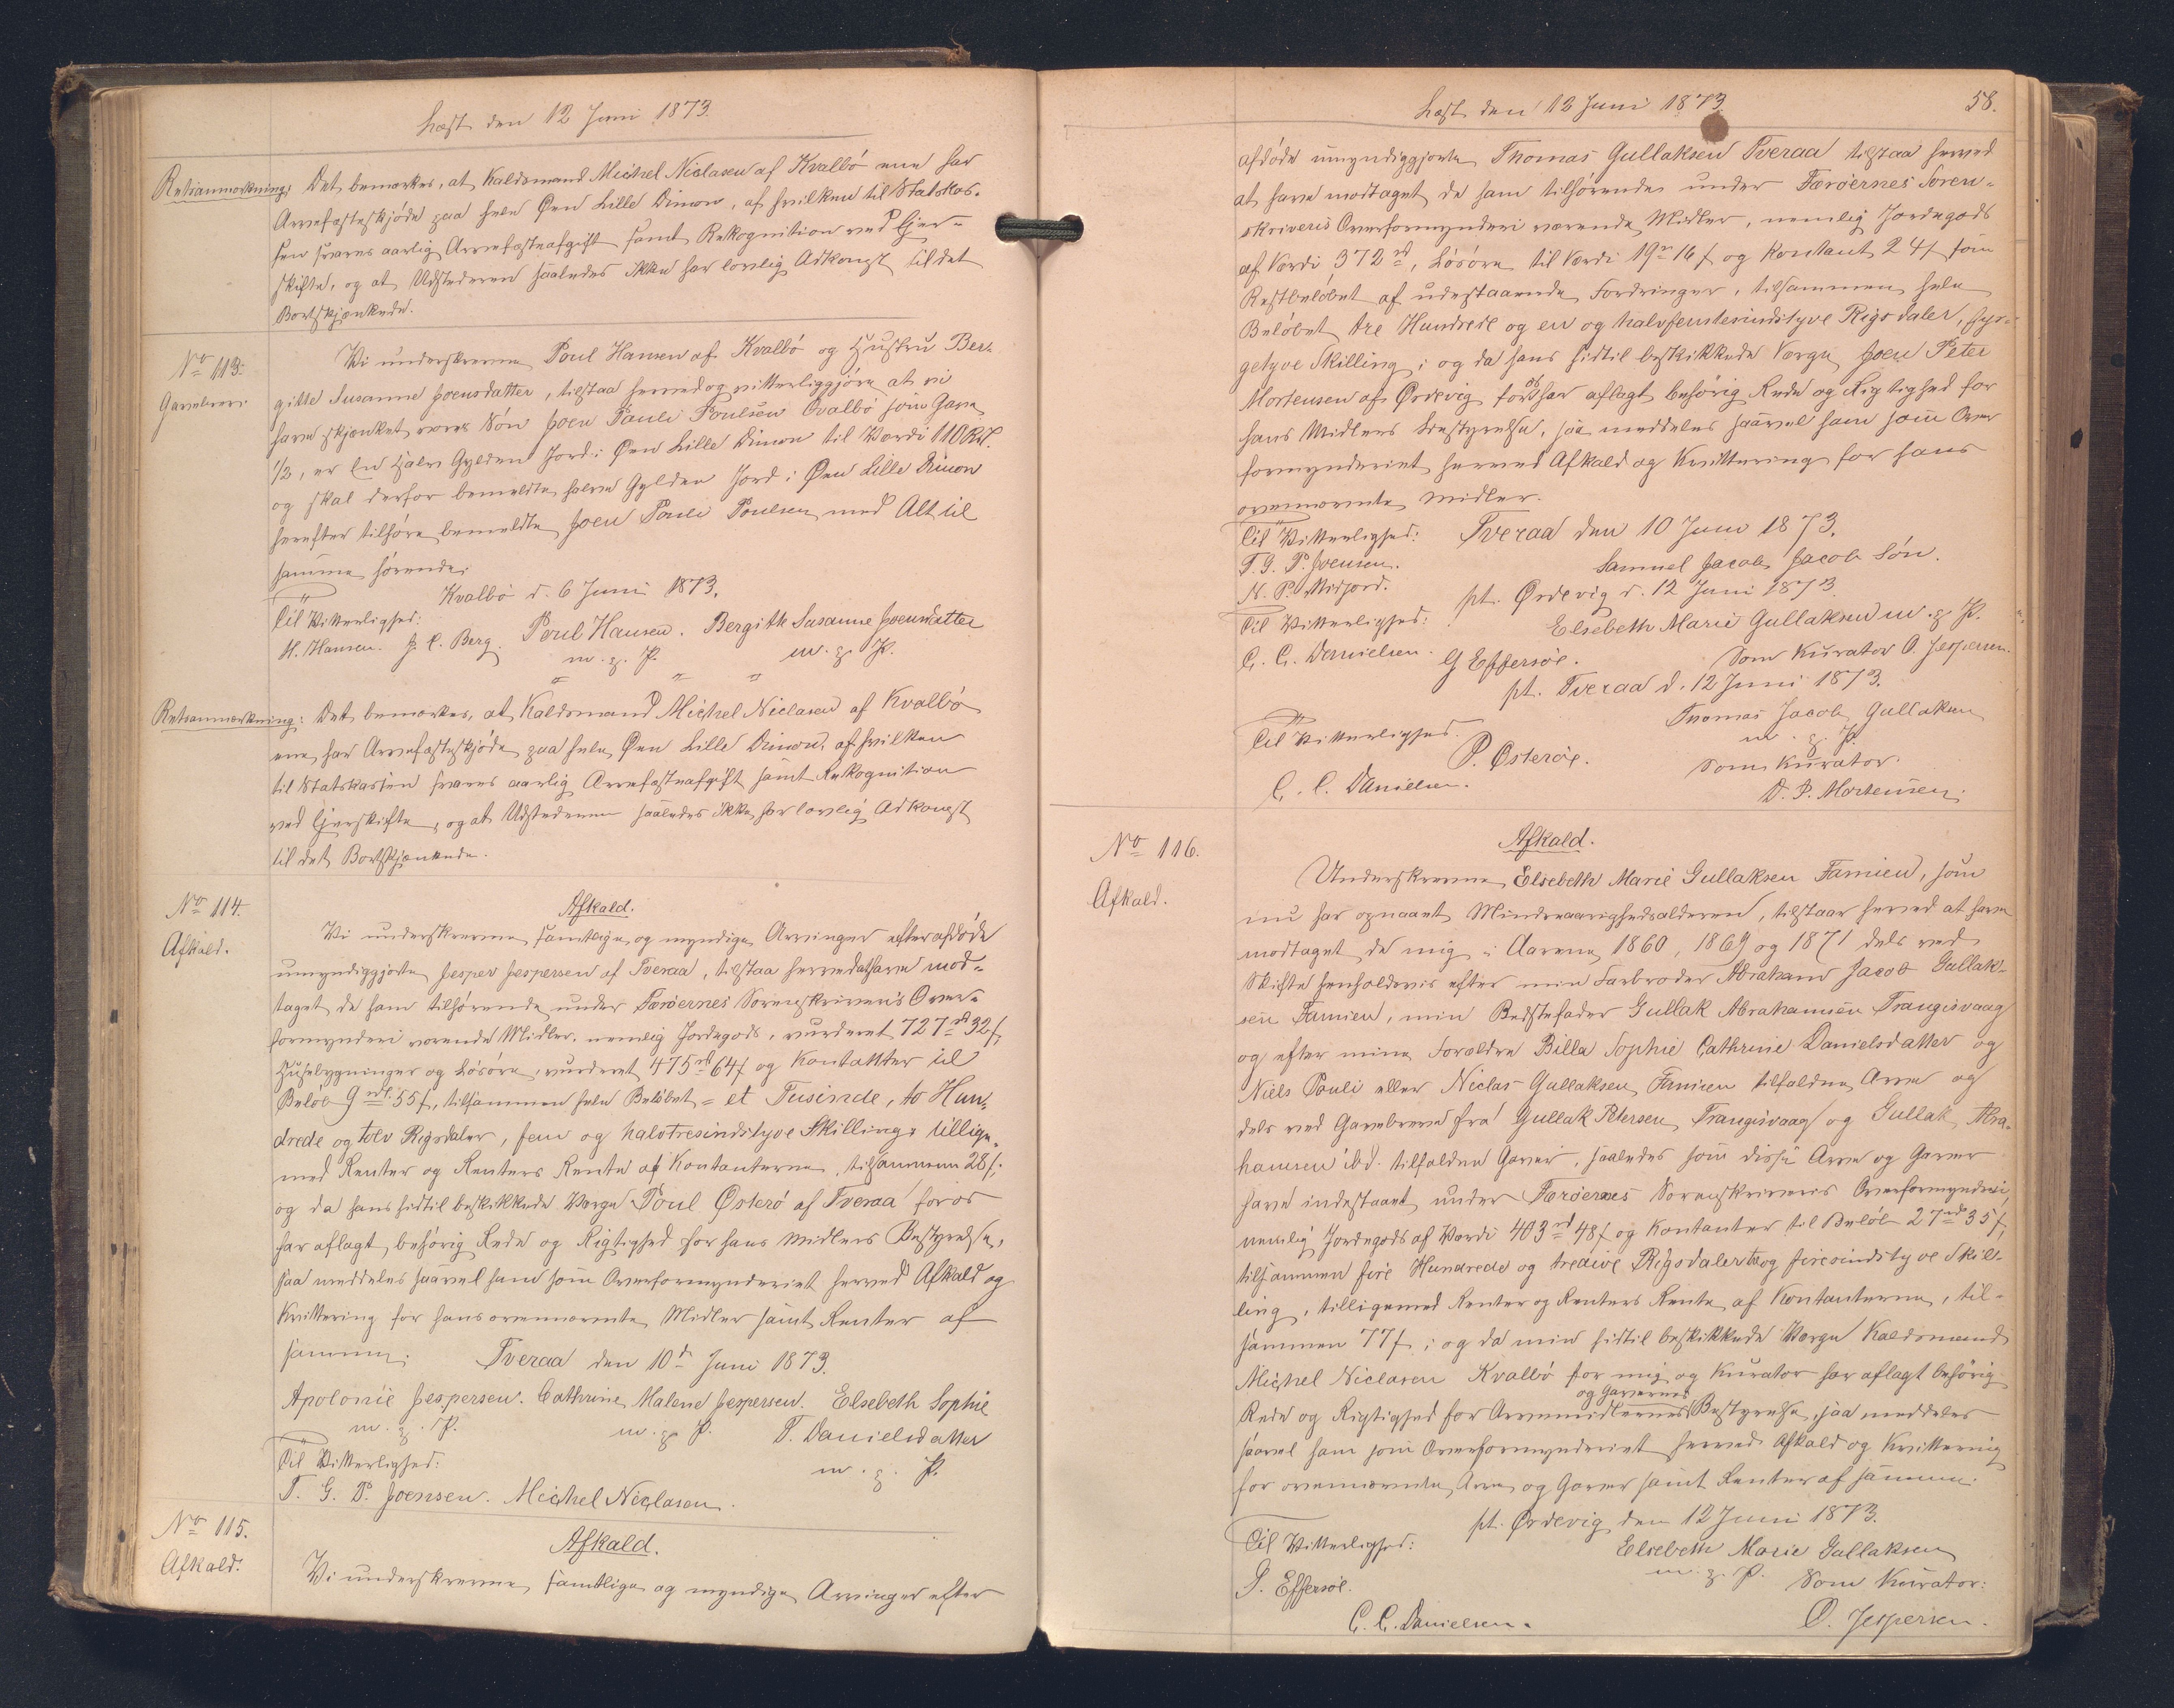 Læst den 12 Juni 1873.
Retsanmærkning: Det bemærkes, at Kaldsmand Michel Niclasen af Kvalbø ene har
Arvefæsteskjøde paa hele Øen Lille Dimon, af hvilken til Statskas-
sen svares aarlig Arvefæsteafgift samt Rekognition ved Ejer-
skifte, og at Udstederen saaledes ikke har lovlig Adkomst til det
Bortskjænkede.
No 113.
Gavebrev.
Vi underskrevne Poul Hansen af Kvalbø og Hustru Ber-
gitte Susanne Joensdatter, tilstaa herved og vitterliggjøre at vi
have skjænket vores Søn Joen Pauli Poulsen Qvalbø som Gave
1/2, er En Halv Gylden Jord i Øen Lille Dimon til Værdi 110 Rd.
og skal derfor bemeldte halve Gylden Jord i Øen Lille Dimon
herefter tilhøre bemeldte Joen Pauli Poulsen med Alt til
samme hørende.
Kvalbø d. 6 Juni 1873.
Til Vitterlighed:
H. Hansen. J. C. Berg. Poul Hansen. Bergith Susanne Joensdatter
m. p. P. m. p. P.
Retsanmærkning: Det bemærkes, at Kaldsmand Michel Niclasen af Kvalbø
ene har Arvefæsteskjøde paa hele Øen Lille Dimon, af hvilken
til Statskassen svares aarlig Arvefæsteafgift samt Rekognition
ved Ejerskifte, og at Udstederen saaledes ikke har lovlig Adkomst
til det Bortskjænkede.
No 114.
Afkald.
Afkald.
Vi underskrevne samtlige og myndige Arvinger efter afdøde
umyndiggjorte Jesper Jespersen af Tveraa, tilstaa herved at have mod-
taget de ham tilhørende under Færøernes Sorenskriveris Over-
formynderi værende Midler, nemlig Jordegods, vurderet 727 rd 32 ß,
Husebygninger og Løsøre, vurderet 475 rd 64 ß og Kontanter til
Beløb 9 rd 55 ß, tilsammen hele Beløbet = et Tusinde, to Hun-
drede og tolv Rigsdaler, fem og halvtresindstyve Skilling, tillige-
med Renter og Renters Rente af Kontanterne, tilsammen 28 ß;
og da hans hidtil beskikkede Værge Poul Østerø af Tveraa for os
har aflagt behørig Rede og Rigtighed for hans Midlers Bestyrelse,
saa meddeles saavel ham som Overformynderiet herved Afkald og
Kvittering for hans ovennævnte Midler samt Renter af
samme.
Tveraa den 10de Juni 1873.
Apolonie Jespersen. Cathrine Malene Jespersen. Elsebeth Sophie
m. p. P. m. p. P. T. Danielsdatter
Til Vitterlighed: m. p. P.
T. G. P. Joensen. Michel Niclasen.
No 115.
Afkald.
Afkald.
Vi underskrevne samtlige og myndige Arvinger efter
Læst den 12 Juni 1873.
58.
afdøde umyndiggjorte Thomas Gullaksen Tveraa tilstaa herved
at have modtaget de ham tilhørende under Færøernes Soren-
skriveris Overformynderi værende Midler, nemlig Jordegods
af Værdi 372 rd, Løsøre til Værdi 19 rd 16 ß og kontant 24 ß som
Restbeløbet af udestaaende Fordringer, tilsammen hele
Beløbet tre Hundrede og en og halvfemtesindstyve Rigsdaler, fyr-
getyve Skilling; og da hans hidtil beskikkede Værge Joen Peter
Mortensen af Ørdevig for os har aflagt behørig Rede og Rigtighed for
hans Midlers Bestyrelse, saa meddeles saavel ham som Over
formynderiet herved Afkald og Kvittering for hans
ovennævnte Midler.
Til Vitterlighed: Tveraa den 10 Juni 1873.
T. G. P. Joensen. Samuel Jacob Jacob Søn.
N. P. Midjord. pt. Ørdevig d. 12 Juni 1873.
Til Vitterlighed: Elsebeth Marie Gullaksen m. p. P.
C. C. Danielsen. G Effersøe. Som Kurator O. Jespersen.
pt. Tveraa d. 12 Juni 1873.
Thomas Jacob Gullaksen
Til Vitterlighed. m. p. P.
P. Østerøe. Som Kurator.
C. C. Danielsen. D. P. Mortensen.
No 116.
Afkald.
Afkald.
Underskrevne Elsebeth Marie Gullaksen Famien, som
nu har opnaaet Mindreaarighedsalderen, tilstaar herved at have
modtaget de mig i Aarene 1860, 1869 og 1871 dels ved
Skifte henholdsvis efter min Farbroder Abraham Jacob Gullak-
sen Famien, min Bedstefader Gullak Abrahamsen Trangisvaag
og efter mine Forældre Billa Sophie Cathrine Danielsdatter og
Niels Pauli eller Niclas Gullaksen Famien tilfaldne Arve og
dels ved Gavebreve fra Gullak Petersen Trangisvaag og Gullak Abra-
hamsen ibd. tilfaldne Gaver, saaledes som disse Arve og Gaver
have indestaaet under Færøernes Sorenskriveris Overformynderi,
nemlig Jordegods af Værdi 403 rd 48 ß og Kontanter til Beløb 27 rd 35 ß,
tilsammen fire Hundrede og tredive Rigsdaler tre og firesindstyve Skil-
ling, tilligemed Renter og Renters Rente af Kontanterne, til-
sammen 77 ß; og da min hidtil beskikkede Værge Kaldsmand
Michel Niclasen Kvalbø for mig og Kurator har aflagt behørig
Rede og Rigtighed for Arvemidlernes og Gavernes Bestyrelse, saa meddeles
saavel ham som Overformynderiet herved Afkald og Kvittering
for ovennævnte Arve og Gaver samt Renter af samme.
pt. Ørdevig den 12 Juni 1873.
Til Vitterlighed: Elsebeth Marie Gullaksen
G. Effersøe. m. p. P. Som Kurator:
C. C. Danielsen. O. Jespersen.